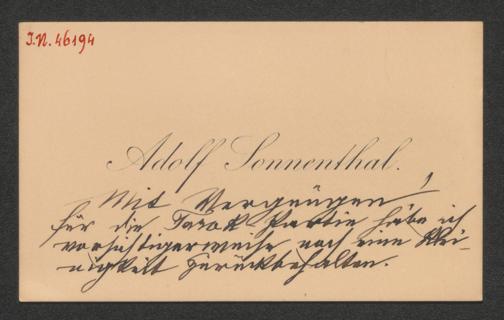 I.N. 46194
Adolf Sonnenthal.
Mit Vergnügen!
für die Tarok-Partie habe ich
vorsichtigerweise noch eine Klei-
nigkeit zurückbehalten.